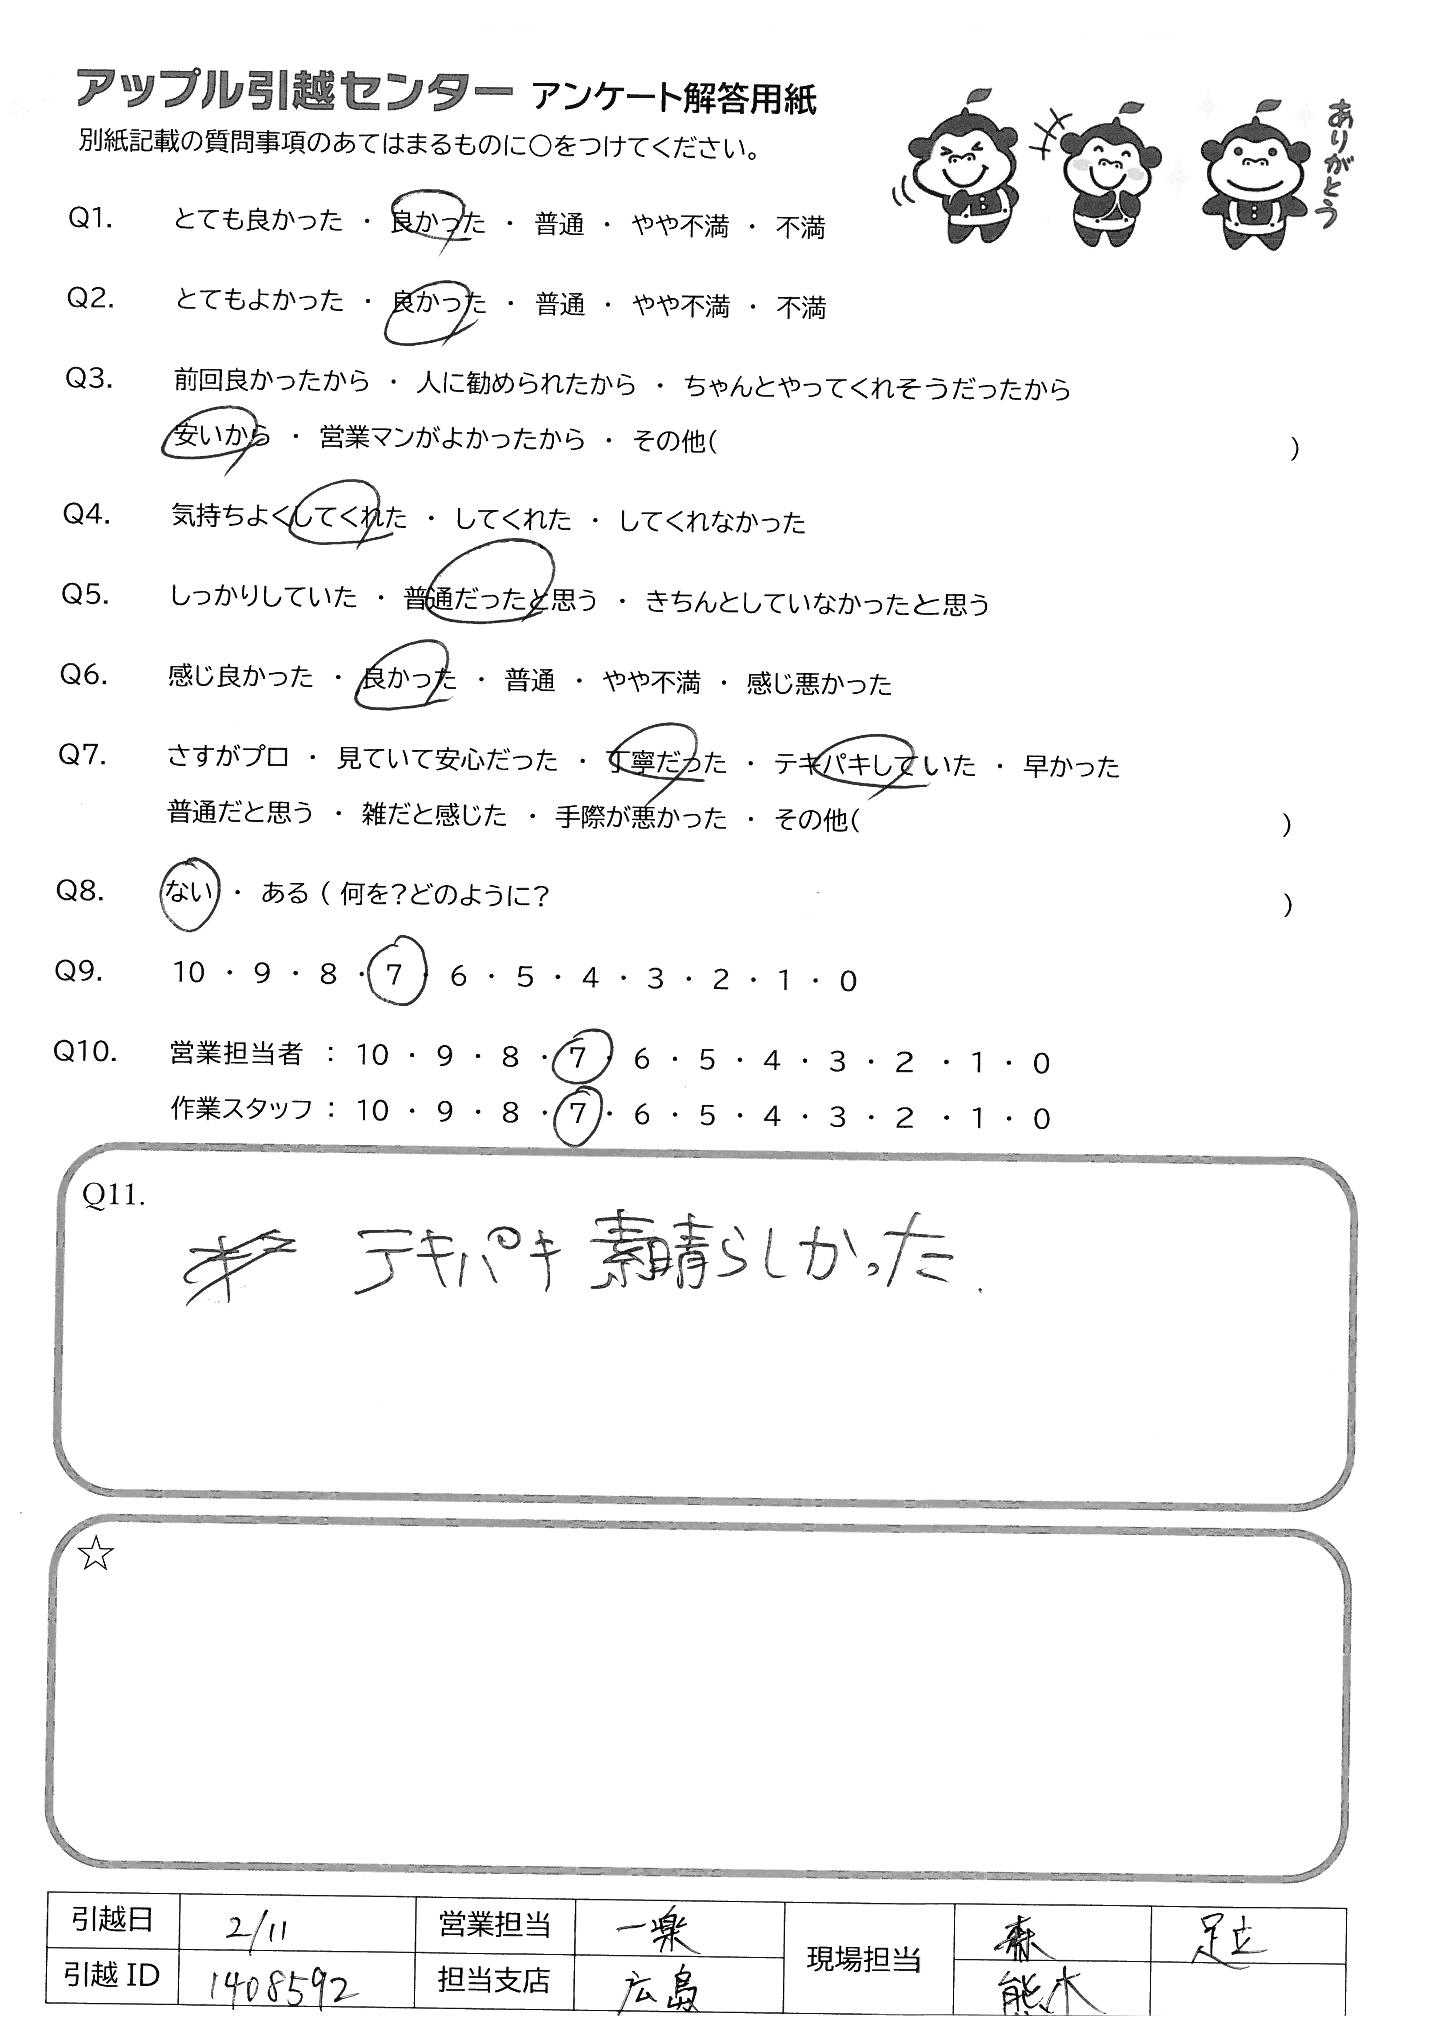 アップル引越センター アンケート解答用紙
別紙記載の質問事項のあてはまるものに○をつけてください。
ありがとう
Q1. とても良かった ・ 良かった ・ 普通 ・ やや不満 ・ 不満
Q2. とてもよかった ・ 良かった ・ 普通 ・ やや不満 ・ 不満
Q3. 前回良かったから ・ 人に勧められたから ・ ちゃんとやってくれそうだったから
安いから ・ 営業マンがよかったから ・ その他( )
Q4. 気持ちよくしてくれた ・ してくれた ・ してくれなかった
Q5. しっかりしていた ・ 普通だったと思う ・ きちんとしていなかったと思う
Q6. 感じ良かった ・ 良かった ・ 普通 ・ やや不満 ・ 感じ悪かった
Q7. さすがプロ ・ 見ていて安心だった ・ 丁寧だった ・ テキパキしていた ・ 早かった
普通だと思う ・ 雑だと感じた ・ 手際が悪かった ・ その他( )
Q8. ない ・ ある ( 何を?どのように? )
Q9. 10 ・ 9 ・ 8 ・ 7 ・ 6 ・ 5 ・ 4 ・ 3 ・ 2 ・ 1 ・ 0
Q10. 営業担当者 : 10 ・ 9 ・ 8 ・ 7 ・ 6 ・ 5 ・ 4 ・ 3 ・ 2 ・ 1 ・ 0
作業スタッフ : 10 ・ 9 ・ 8 ・ 7 ・ 6 ・ 5 ・ 4 ・ 3 ・ 2 ・ 1 ・ 0
Q11.
テキパキ 素晴らしかった.
☆
引越日 2/11 営業担当 一楽 現場担当 森 足立
引越 ID 1408592 担当支店 広島 熊木